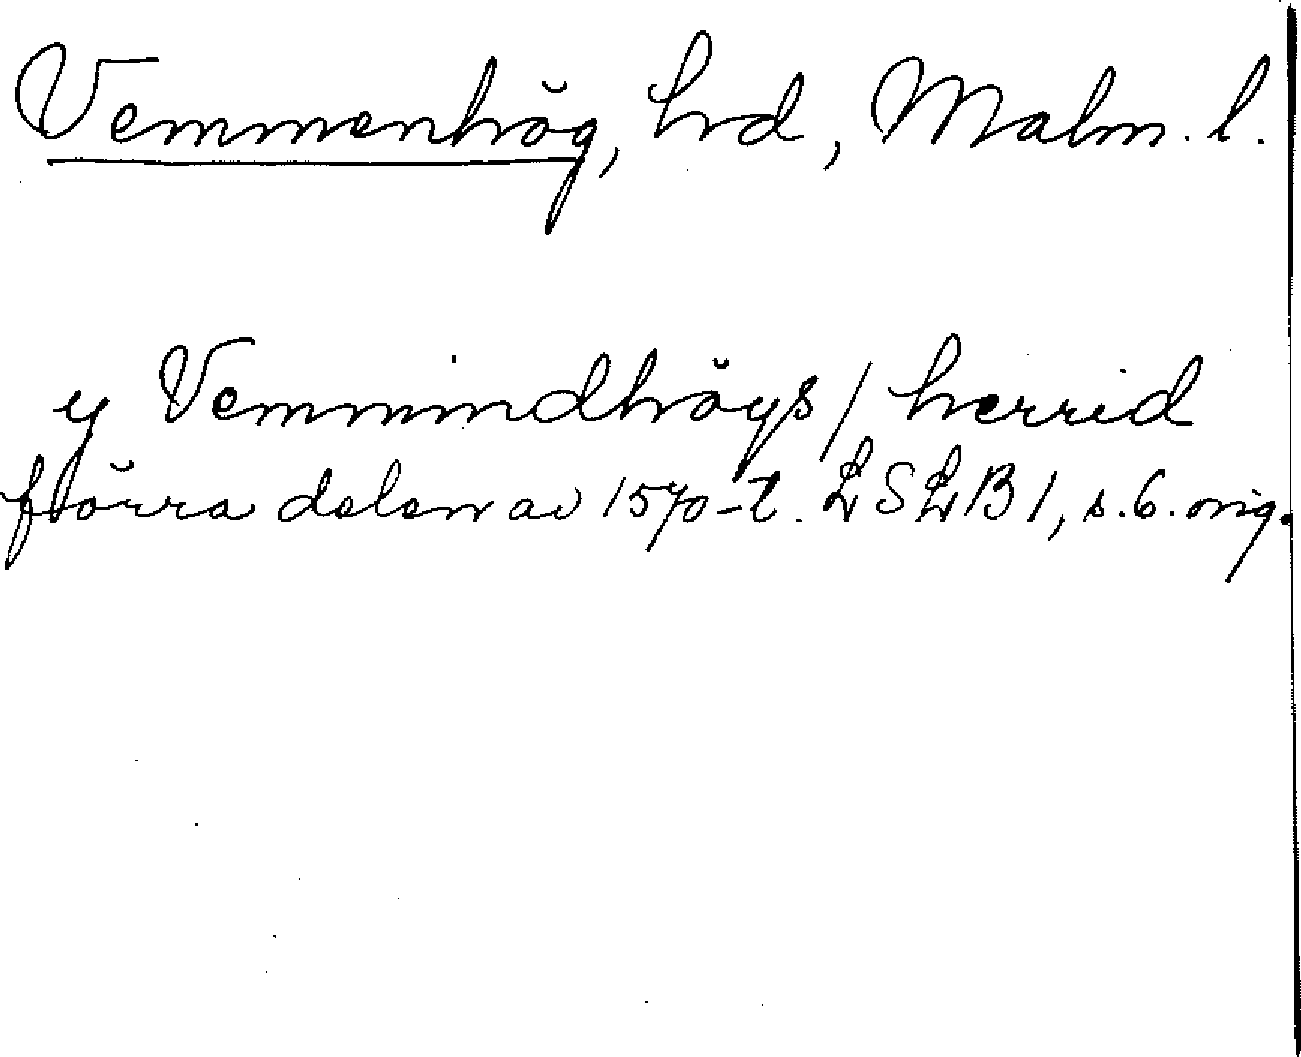 Vemmenhög, hrd, Malm. l.
y Vemmindhögs / herrid
förra delen av 1570-t. LSLB 1, s. 6. orig.